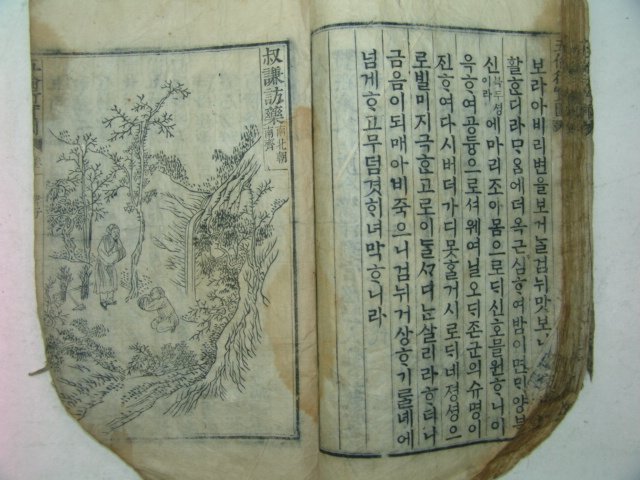 보라아비리변을보거ᄂᆞᆯ검뉘맛보니
활ᄒᆞ더라ᄆᆞᄋᆞᆷ에더옥근심ᄒᆞ여밤이면ᄆᆡ양북
신북두셩이라에마리조아몸으로ᄃᆡ신ᄒᆞ믈원ᄒᆞ니이
윽ᄒᆞ여공듕으로셔웨여닐오ᄃᆡ존군의슈명이
진ᄒᆞ여다시버더가디못ᄒᆞᆯ거시로ᄃᆡ네졍셩으
로빌미지극ᄒᆞᆫ고로이ᄃᆞᆯᄭᆞ디ᄂᆞᆫ살리라ᄒᆞ더니
금음이되매아비죽으니검뉘거상ᄒᆞ기ᄅᆞᆯ녜에
넘게ᄒᆞ고무덤겻ᄒᆡ녀막ᄒᆞ니라
叔謙訪藥
南北朝
南齊